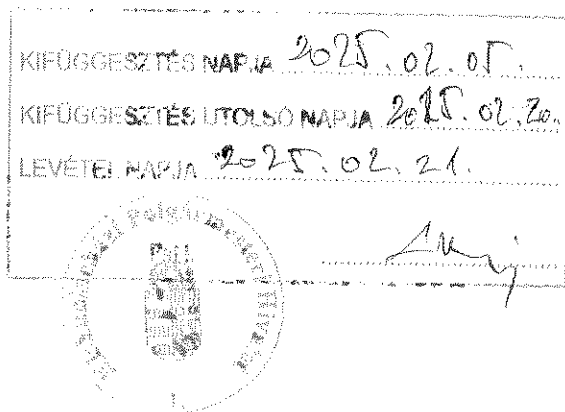 KIFÜGGESZTÉS NAPJA 2025.02.05.
KIFÜGGESZTÉS UTOLSÓ NAPJA 2025.02.20.
LEVÉTEL NAPJA 2025.02.21.
Polgármesteri Hivatal